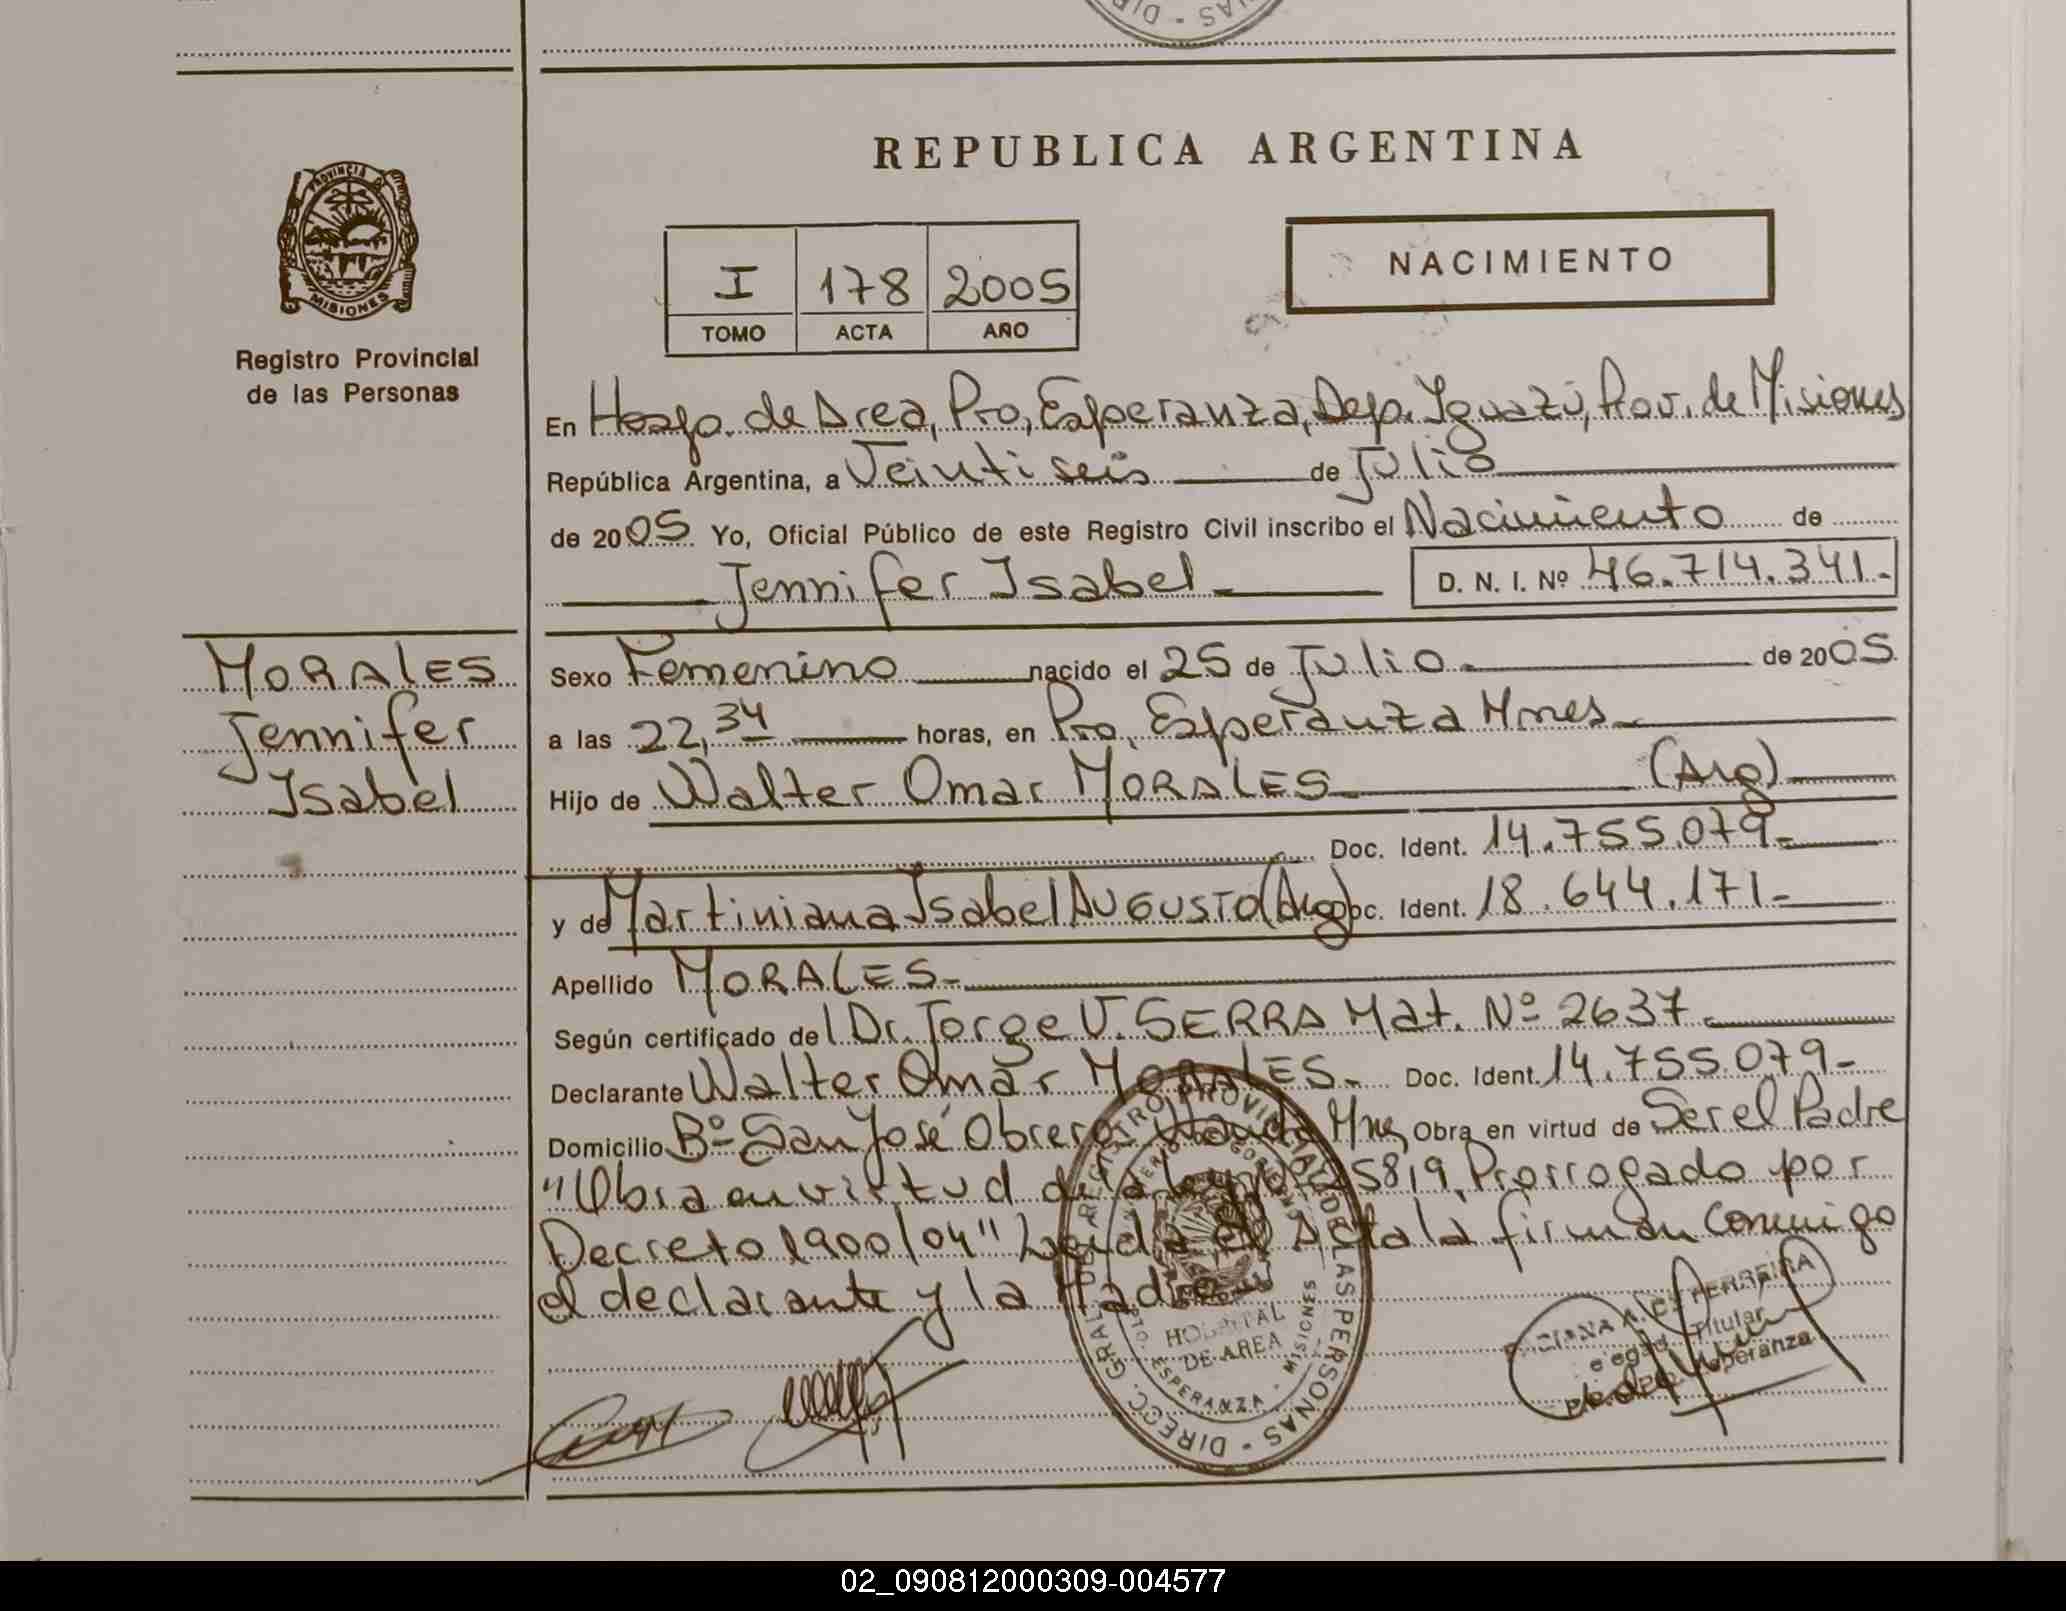 DIR - IAS
REPUBLICA ARGENTINA
PROVINCIA D
MISIONES
Registro Provincial
de las Personas
I 178 2005
TOMO ACTA AÑO
NACIMIENTO
En Hosp. de Area, Pto, Esperanza, Dep. Iguazú, Prov. de Misiones
República Argentina, a Veinti seis de Julio
de 2005 Yo, Oficial Público de este Registro Civil inscribo el Nacimiento de
Jennifer Isabel
D. N. I. Nº 46.714.341.-
MORALES
Jennifer
Isabel
Sexo Femenino nacido el 25 de Julio.- de 2005.
a las 22,34 horas, en Pto, Esperanza Mnes.-
Hijo de Walter Omar MORALES (Arg)
Doc. Ident. 14.755.079.-
y de Martiniana Isabel AUGUSTO (Arg) Doc. Ident. 18.644.171.-
Apellido MORALES.-
Según certificado del Dr. Jorge V. SERRA Mat. Nº 2637.-
Declarante Walter Omar MORALES.- Doc. Ident. 14.755.079.-
Domicilio Bº San José Obrero, Wanda Mnes, Obra en virtud de Ser el Padre
"Obra en virtud de la Ley Nº 25819, Prorrogado por
Decreto 1900/04" Leída el Acta la firman conmigo
el declarante y la Madre
DIRECC. GRAL. DE REGISTRO PROVINCIAL DE LAS PERSONAS
HOSPITAL
DE AREA
PTO. ESPERANZA - MISIONES
A. FERREIRA
Titular
Esperanza
02_090812000309-004577